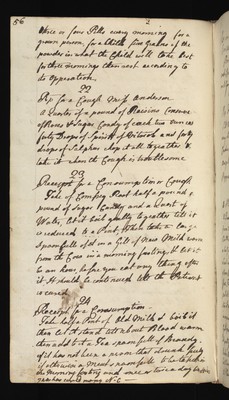 56
2
three or four Pills every morning for a
grown person, for a Child five grains of the
powder in what the Child will take best
for three mornings then rest according to
its Operation.
22
Rx for a Cough Mrs Anderson
A Quarter of a pound of Raisins Conserve
of Roses & Sugar Candy of each two ounces
forty Drops of Spirit of Vitriol and forty
drops of Sulpher chop it all together &
take it when the Cough is troublesome
23
Receipt for a Consumption or Cough
Take of Comfrey Root half a pound a
pound of Sugar Candy and a Quart of
Water, let it boil gently together till it
is reduced to a Pint, then take a large
Spoonfull of it in a Gill of New Milk warm
from the Cow in a morning fasting, & let it
be an hour before you eat any thing after
it It should be continued till the Patient
is cured
24
Receipt for a Consumption
Take half a Pint of Old Milk & boil it
then let it stand till about Blood warm
then add to it a Tea spoonfull of Brandy
if it has not been a person that drank
if otherwise a spoonfull to be taken
in the morning fasting and once or twice a day